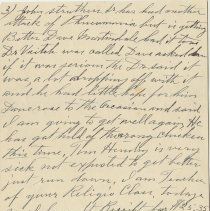 3/ John Streeter Sr has had another
attack of Pneumonia but is getting
Better Dave Grostendale had it too,
Dr Veitch was called Dave asked him
if it was serious the Dr said it
was, a lot dropping off with it
and he had little hope for him
Dave rose to the Occasion and said
I am going to get well again, He
has got hold of the wrong chicken
this time, Tom Hendry is very
sick not expected to get better
just run down, I am Teacher
of your Religio Class today
Receipt for $25.35